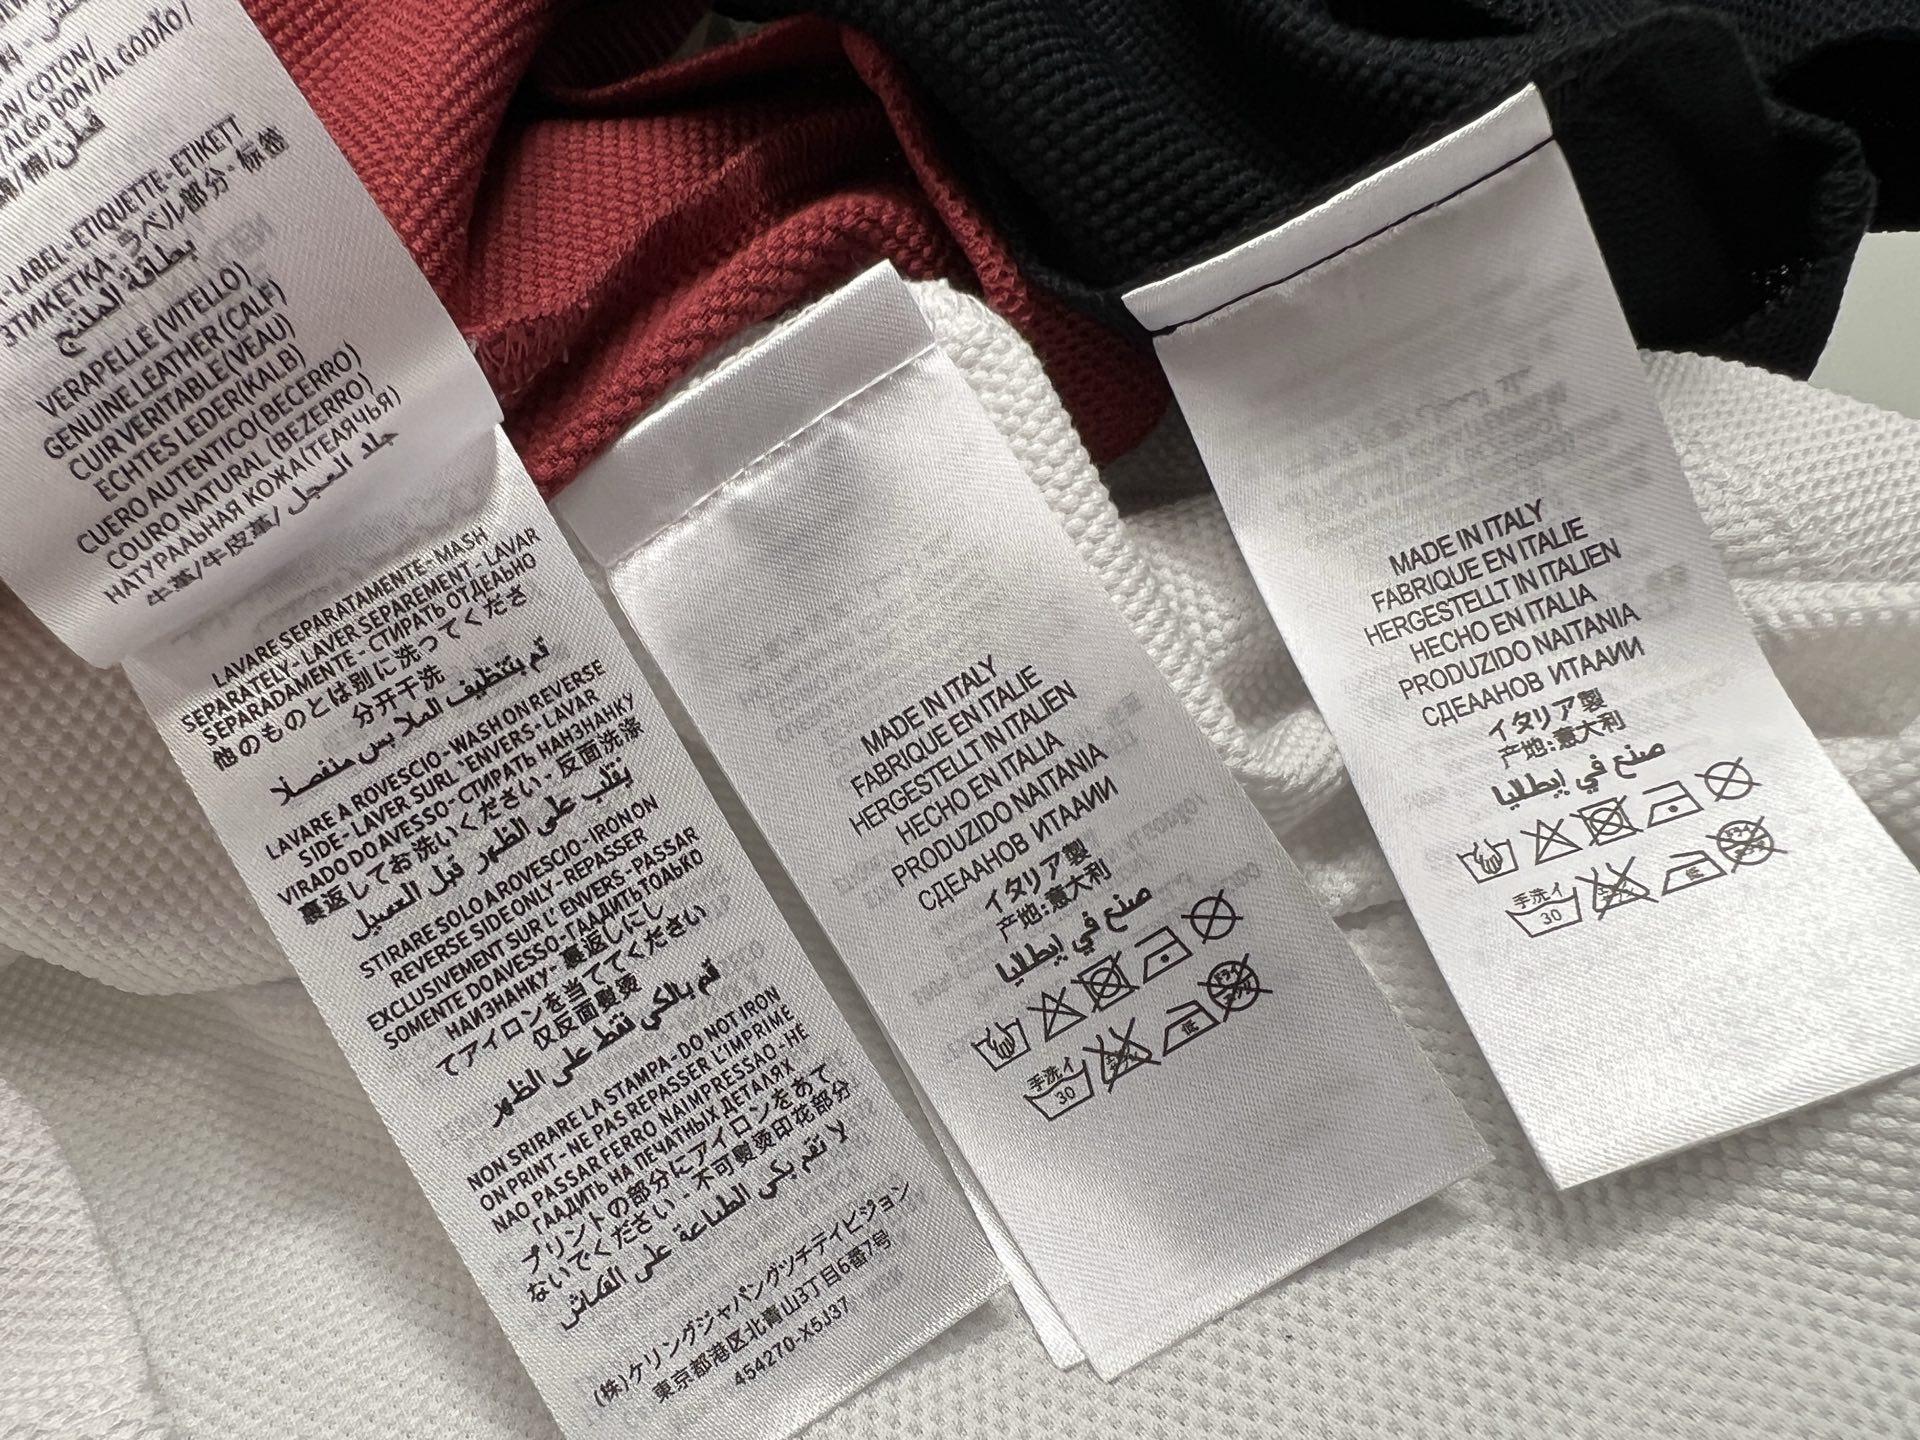 ON/COTON/
/ALGO DON/ALGODÃO/
LABEL-ETIQUETTE-ETIKETT
ЭТИКЕТКА-ラベル部分-标签
بطاقة المنتج
VERAPELLE(VITELLO)
GENUINE LEATHER(CALF)
CUIR VERITABLE(VEAU)
ECHTES LEDER(KALB)
CUERO AUTENTICO(BECERRO)
COURO NATURAL (BEZERRO)
НАТУРААЬНАЯ КОЖА(ТЕАЯЧЬЯ)
牛革/牛皮革/ جلد العجل
LAVARE SEPARATAMENTE-MASH
SEPARATELY-LAVER SEPAREMENT-LAVAR
SEPARADAMENTE-СТИРАТЬ ОТДЕАЬНО
他のものとは別に洗ってくださ
分开干洗
قم بتنظيف الملا بس منفصلا
LAVARE A ROVESCIO-WASH ON REVERSE
SIDE-LAVER SURL 'ENVERS-LAVAR
VIRADO DO AVESSO-СТИРАТЬ НАИЗНАНКУ
裏返してお洗いください-反面洗涤
يقلب على الظهر قبل الغسيل
STIRARE SOLO A ROVESCIO-IRON ON
REVERSE SIDE ONLY-REPASSER
EXCLUSIVEMENT SUR L' ENVERS-PASSAR
SOMENTE DO AVESSO-ГААДИТЬ ТОАЬКО
НАИЗНАНКУ-裏返しにし
てアイロンを当ててください
仅反面熨烫
قم بالكي فقط على الظهر
NON SRIRARE LA STAMPA-DO NOT IRON
ON PRINT-NE PAS REPASSER L'IMPRIME
NAO PASSAR FERRO NA IMPRESSAO-НЕ
ГААДИТЬ НА ПЕЧАТНЫХ ДЕТАЛЯХ
プリントの部分にアイロンをあて
ないでください-不可熨烫印花部分
لا تقم بكي الطباعة على القماش
(株)ケリングジャパングッチディビジョン
東京都港区北青山3丁目6番7号
454270-X5J37
MADE IN ITALY
FABRIQUE EN ITALIE
HERGESTELLT IN ITALIEN
HECHO EN ITALIA
PRODUZIDO NAITANIA
СДЕААНОВ ИТААИИ
イタリア製
产地:意大利
صنع في إيطاليا
手洗イ
30
低
ドライ
MADE IN ITALY
FABRIQUE EN ITALIE
HERGESTELLT IN ITALIEN
HECHO EN ITALIA
PRODUZIDO NAITANIA
СДЕААНОВ ИТААИИ
イタリア製
产地:意大利
صنع في إيطاليا
手洗イ
30
低
ドライ